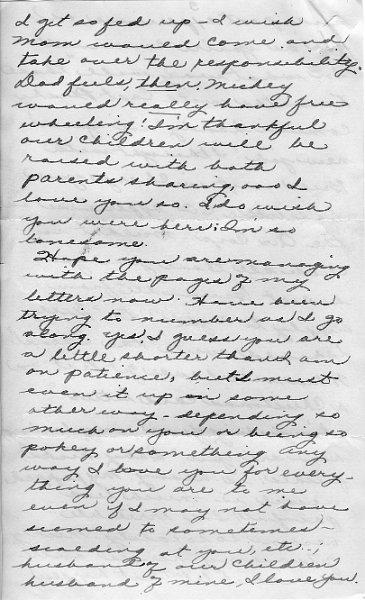 I get so fed up - I wish
Mom would come and
take over the responsibility.
Dad feels, then, Mickey
would really have free
wheeling! I'm thankful
our children will be
raised with both
parents sharing, ooo I
love you so. I do wish
you were here; I'm so
lonesome.
Hope you are managing
with the pages of my
letters now. Have been
trying to number as I go
along. Yes, I guess you are
a little shorter than I am
on patience, but I must
even it up in some
other way - depending so
much on you or being so
pokey or something any
way I love you for every-
thing you are to me
even if I may not have
seemed to sometimes -
scolding at you, etc.;
husband of our children
husband of mine, I love you.